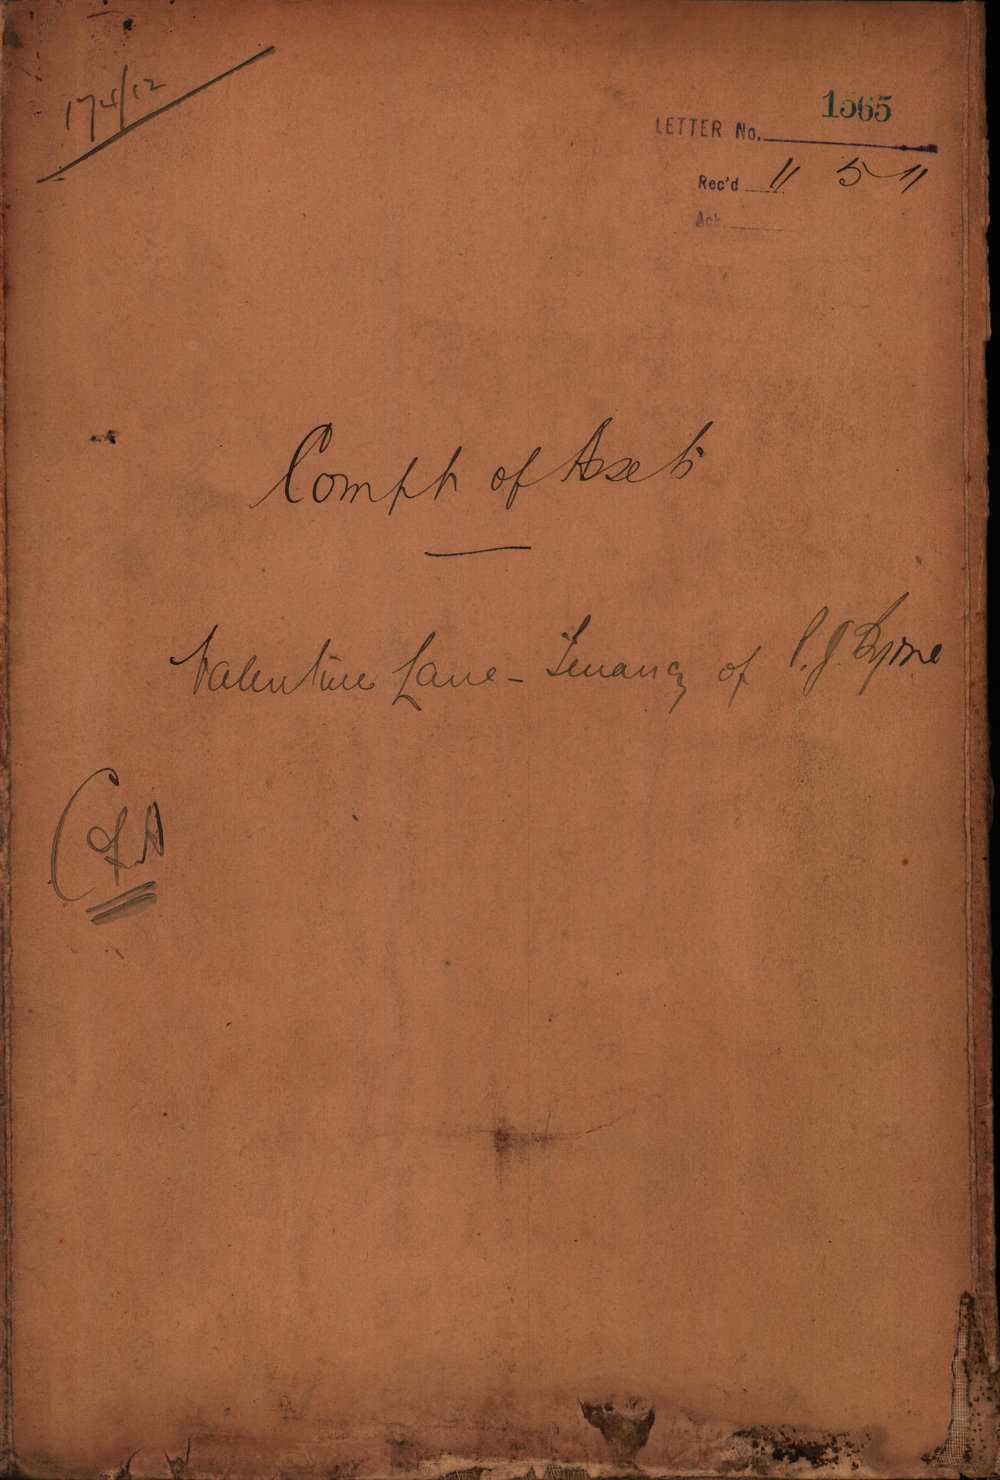 174/12
1565
LETTER No.
Rec'd 11 5 11
Ack.
Compt of Assets
Valentine Lane - Tenancy of P. J. Byrne
C of A